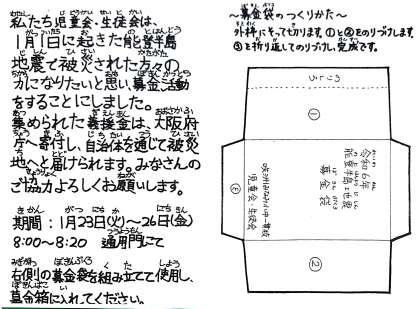 私たち児童会・生徒会は、
1月1日に起きた能登半島
地震で被災された方々の
力になりたいと思い、募金活動
をすることにしました。
集められた義援金は、大阪府
庁へ寄付し、自治体を通じて被災
地へと届けられます。みなさんの
ご協力よろしくお願いします。
期間：1月23日(火)～26日(金)
8:00～8:20 通用門にて
右側の募金袋を組み立てて使用し、
募金箱に入れてください。
～募金袋のつくりかた～
外枠にそって切ります。①と②をのりづけします。
③を折り返してのりづけし、完成です。
のりしろ
①
令和6年
能登半島地震
募金袋
児童会・生徒会
③
②